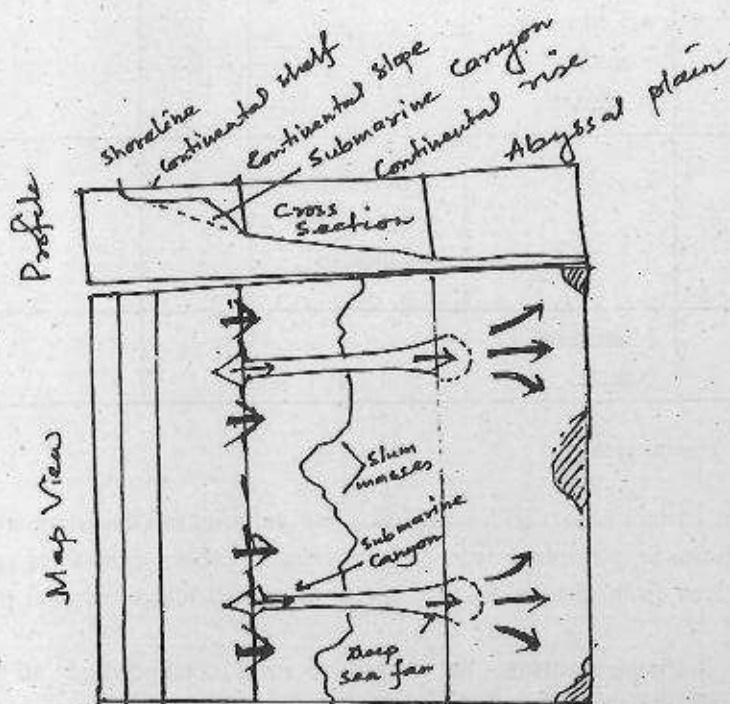 Shoreline
Continental shelf
Continental slope
Submarine Canyon
Continental rise
Abyssal plain
Profile
Cross
Section
Map View
Slum
masses
Submarine
Canyon
Deep
sea fan